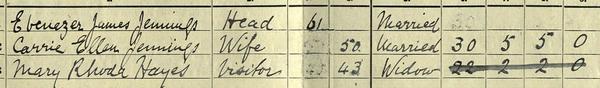 Ebenezer James Jennings Head 61 Married
Carrie Ellen Jennings Wife 50 Married 30 5 5 0
Mary Rhoda Hayes Visitor 43 Widow 22 2 2 0